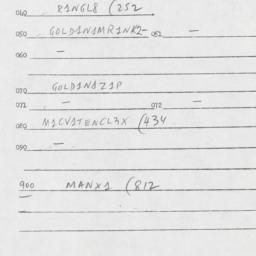 040 81NGL8 (252
050 GOLD1N1MR1NK2- 051 -
060 -
070 GOLD1N1Z1P
071 - 072 -
080 M1CV1TENCL3X (434
090 -
900 MANX1 (812